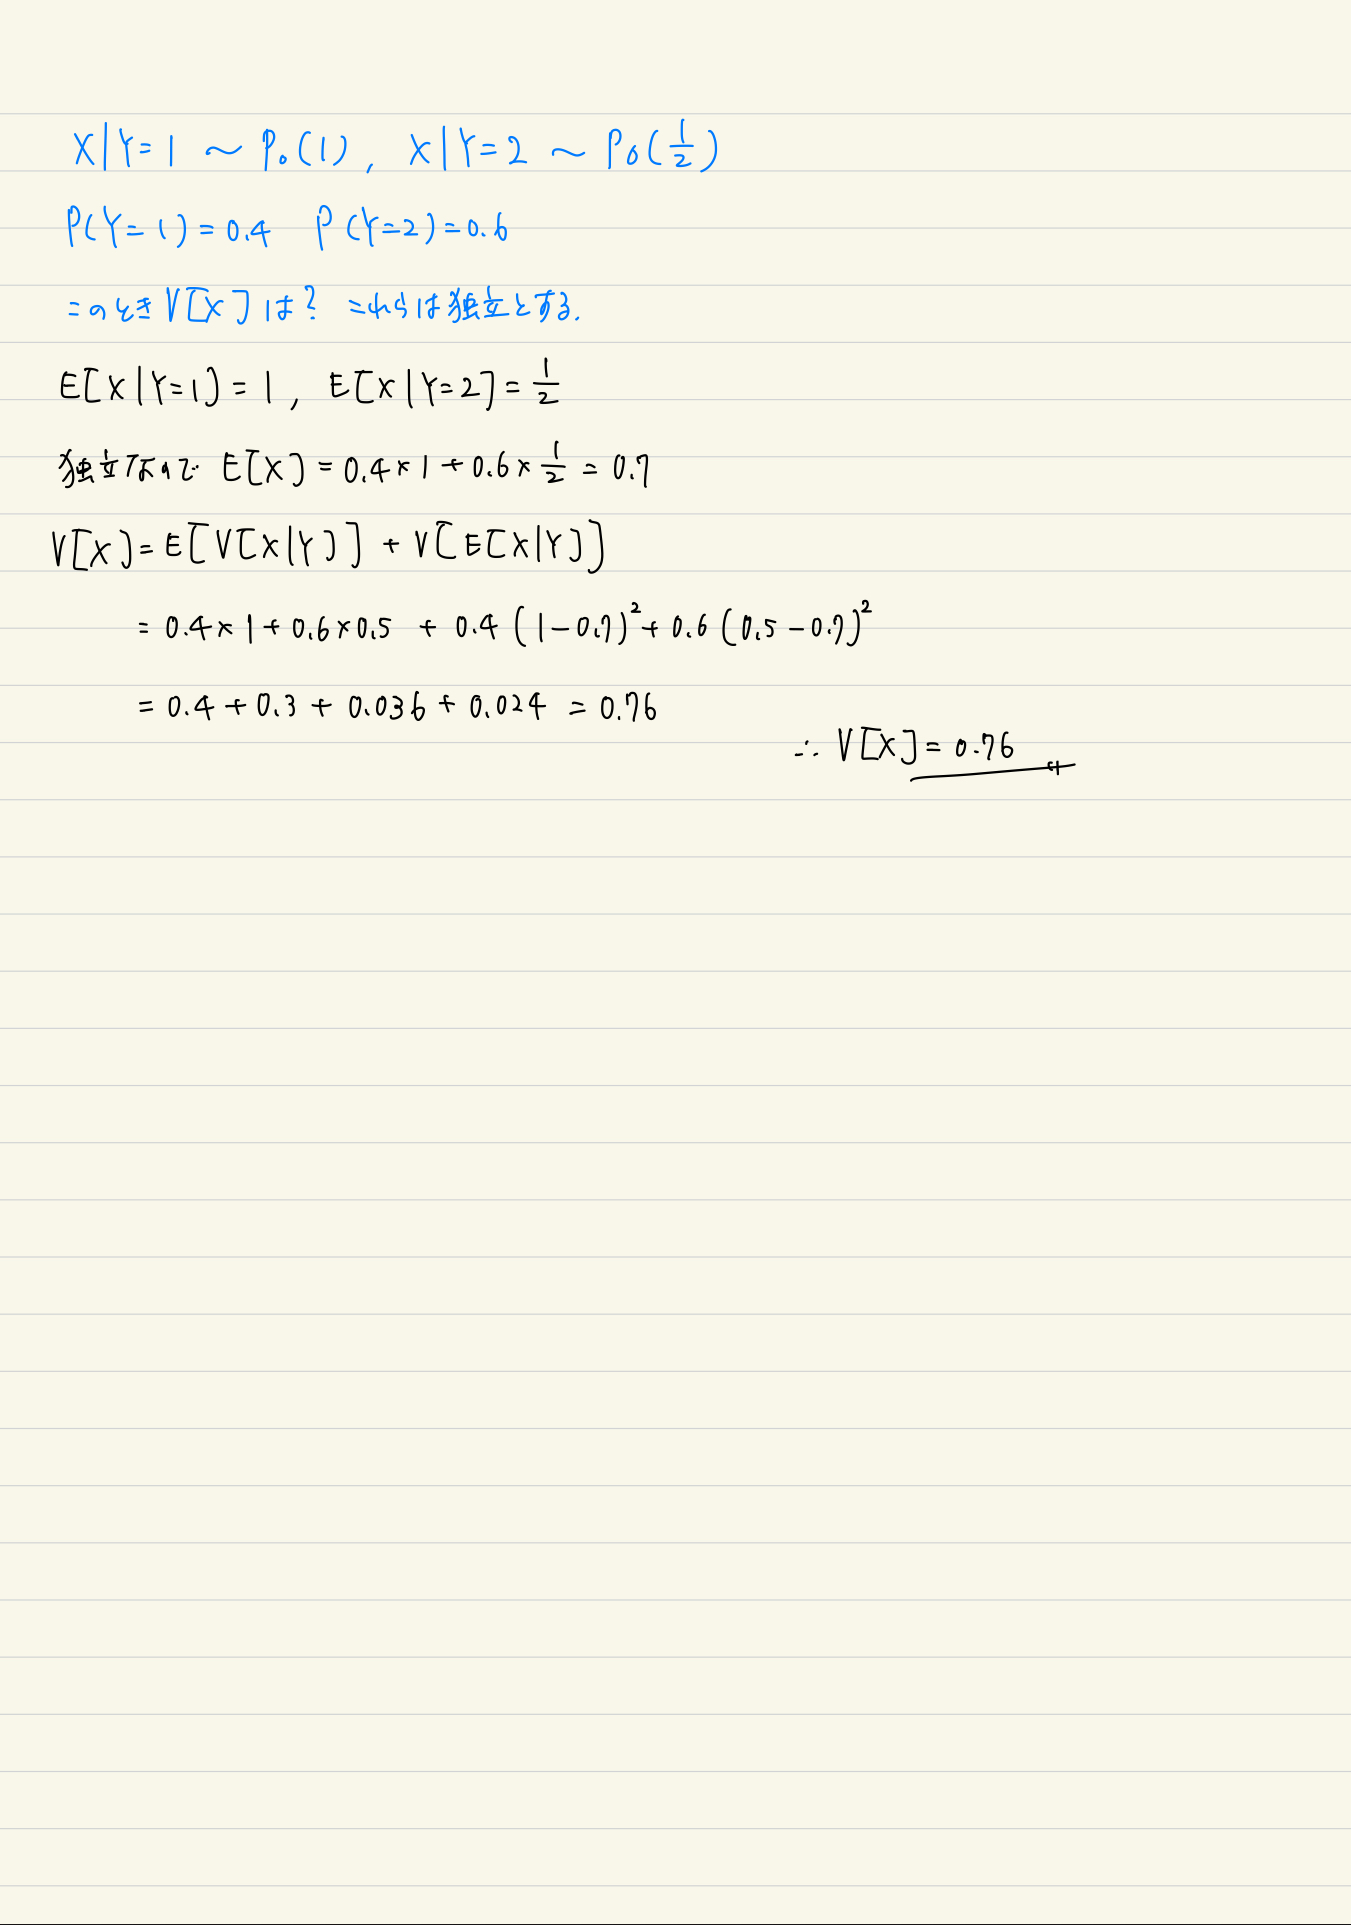 X|Y=1 ~ Po(1), X|Y=2 ~ Po(1/2)
P(Y=1)=0.4 P(Y=2)=0.6
このとき V[X]は? これらは独立とする.
E[X|Y=1]=1, E[X|Y=2]=1/2
独立なので E[X]=0.4×1+0.6×1/2=0.7
V[X]=E[V[X|Y]]+V[E[X|Y]]
=0.4×1+0.6×0.5+0.4(1-0.7)²+0.6(0.5-0.7)²
=0.4+0.3+0.036+0.024=0.76
∴ V[X]=0.76